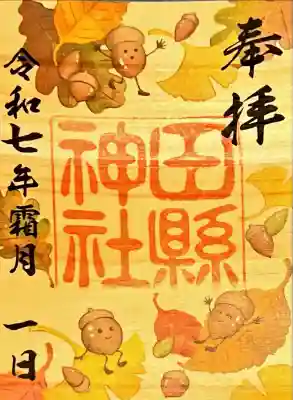 奉拝
田縣
神社
令和七年霜月 一日